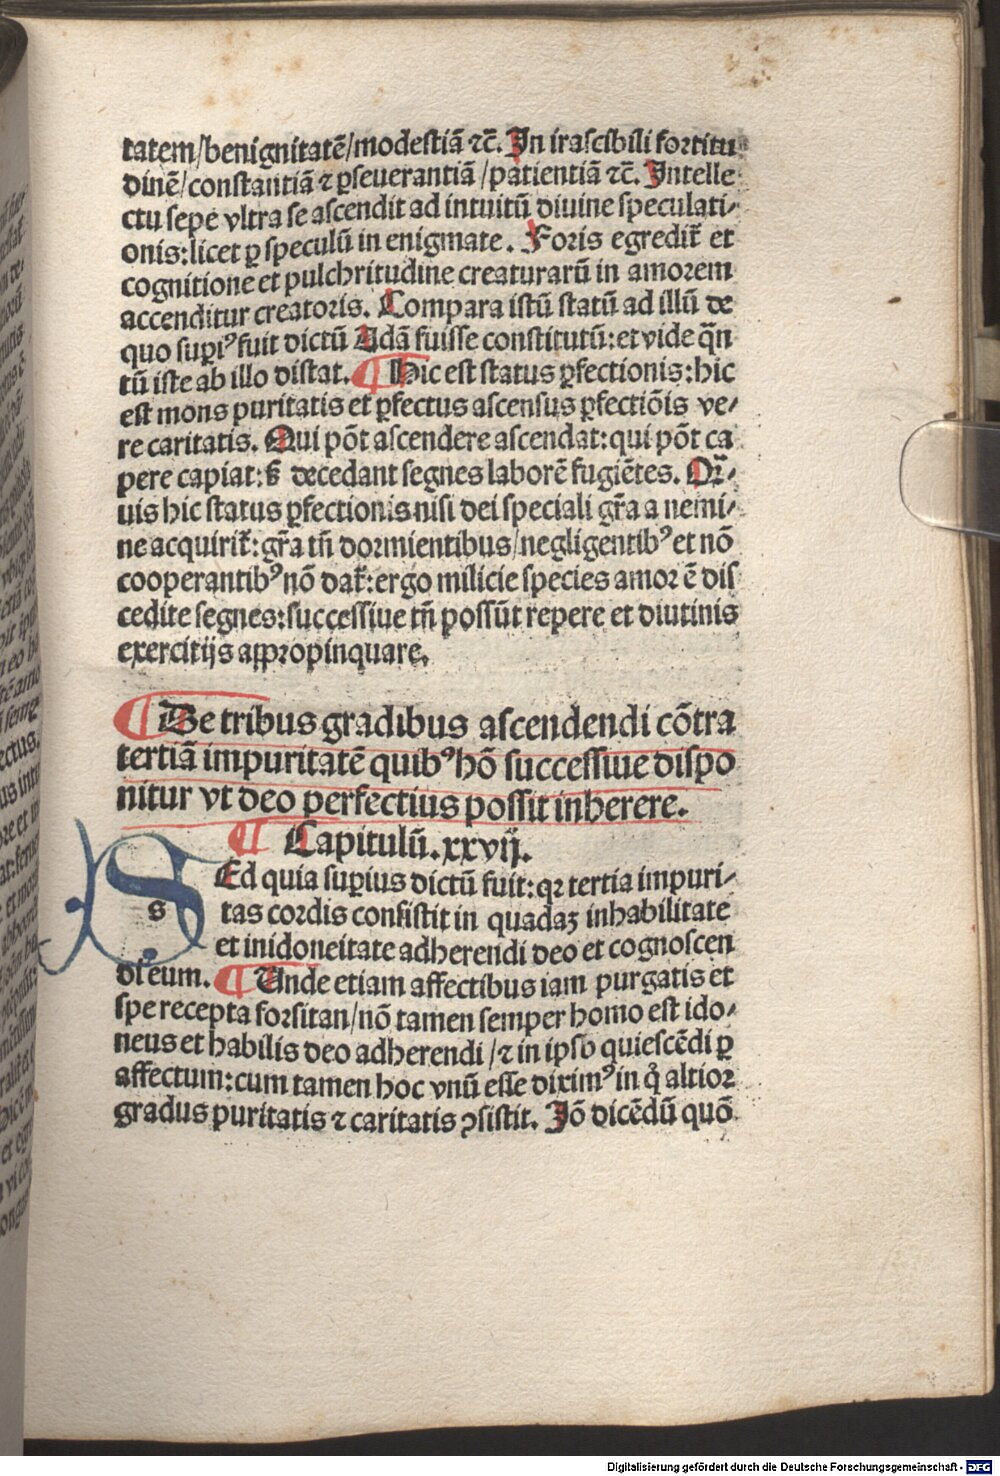 tatem/benignitatē/modestiā ⁊c̄. In irascibili fortitu
dinē/constantiā ⁊ ꝑseuerantiā/patientiā ⁊c̄. Intelle
ctu sepe vltra se ascendit ad intuitū diuine speculati⸗
onis:licet ꝑ speculū in enigmate. Foris egredit̄ et
cognitione et pulchritudine creaturarū in amorem
accenditur creatoris. Compara istū statū ad illū de
quo supiꝰ fuit dictū Adā fuisse constitutū:et vide q̄n
tū iste ab illo distat. ¶ Hic est status ꝑfectionis:hic
est mons puritatis et ꝑfectus ascensus ꝑfectiōis ve⸗
re caritatis. Qui pōt ascendere ascendat:qui pōt ca
pere capiat:s̄ decedant segnes laborē fugiētes. Qr̄⸗
uis hic status ꝑfectionis nisi dei speciali gr̄a a nemi⸗
ne acquirit̄:gr̄a tn̄ dormientibus/negligentibꝰ et nō
cooperantibꝰ nō dat̄:ergo milicie species amor ē dis
cedite segnes:successiue tn̄ possūt repere et diutinis
exercitijs appropinquare.
¶ De tribus gradibus ascendendi cōtra
tertiā impuritatē quibꝰ hō successiue dispo
nitur vt deo perfectius possit inherere.
¶ Capitulū.xxvij.
SEd quia suꝑius dictū fuit:qꝛ tertia impuri⸗
s tas cordis consistit in quadaꝫ inhabilitate
et inidoneitate adherendi deo et cognoscen
di eum. ¶ Unde etiam affectibus iam purgatis et
spe recepta forsitan/nō tamen semper homo est ido⸗
neus et habilis deo adherendi/⁊ in ipso quiescēdi ꝑ
affectum:cum tamen hoc vnū esse diximꝰ in q̊ altior
gradus puritatis ⁊ caritatis ꝯsistit. Jō dicēdū quō
Digitalisierung gefördert durch die Deutsche Forschungsgemeinschaft - DFG